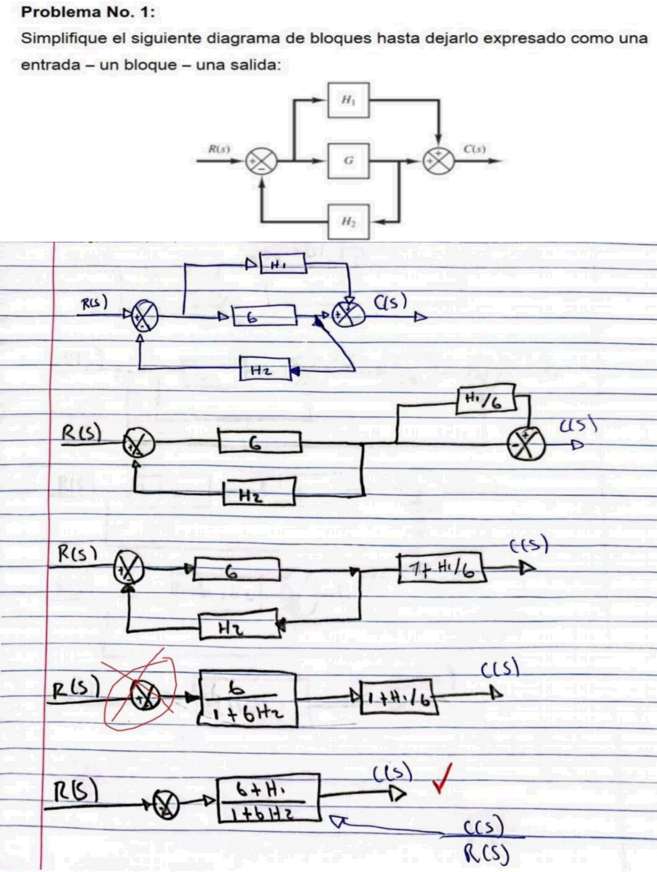 Problema No. 1:
Simplifique el siguiente diagrama de bloques hasta dejarlo expresado como una
entrada – un bloque – una salida:
H₁
R(s) + − G + + C(s)
H₂
H₁
R(s) + - G + + C(s)
H₂
H₁/G
R(S) + G - + C(S)
H₂
R(S) + G 1+H₁/G C(S)
H₂
R(S) + G/1+GH₂ 1+H₁/G C(S)
R(S) G+H₁/1+GH₂ C(S) ✓
C(S)/R(S)